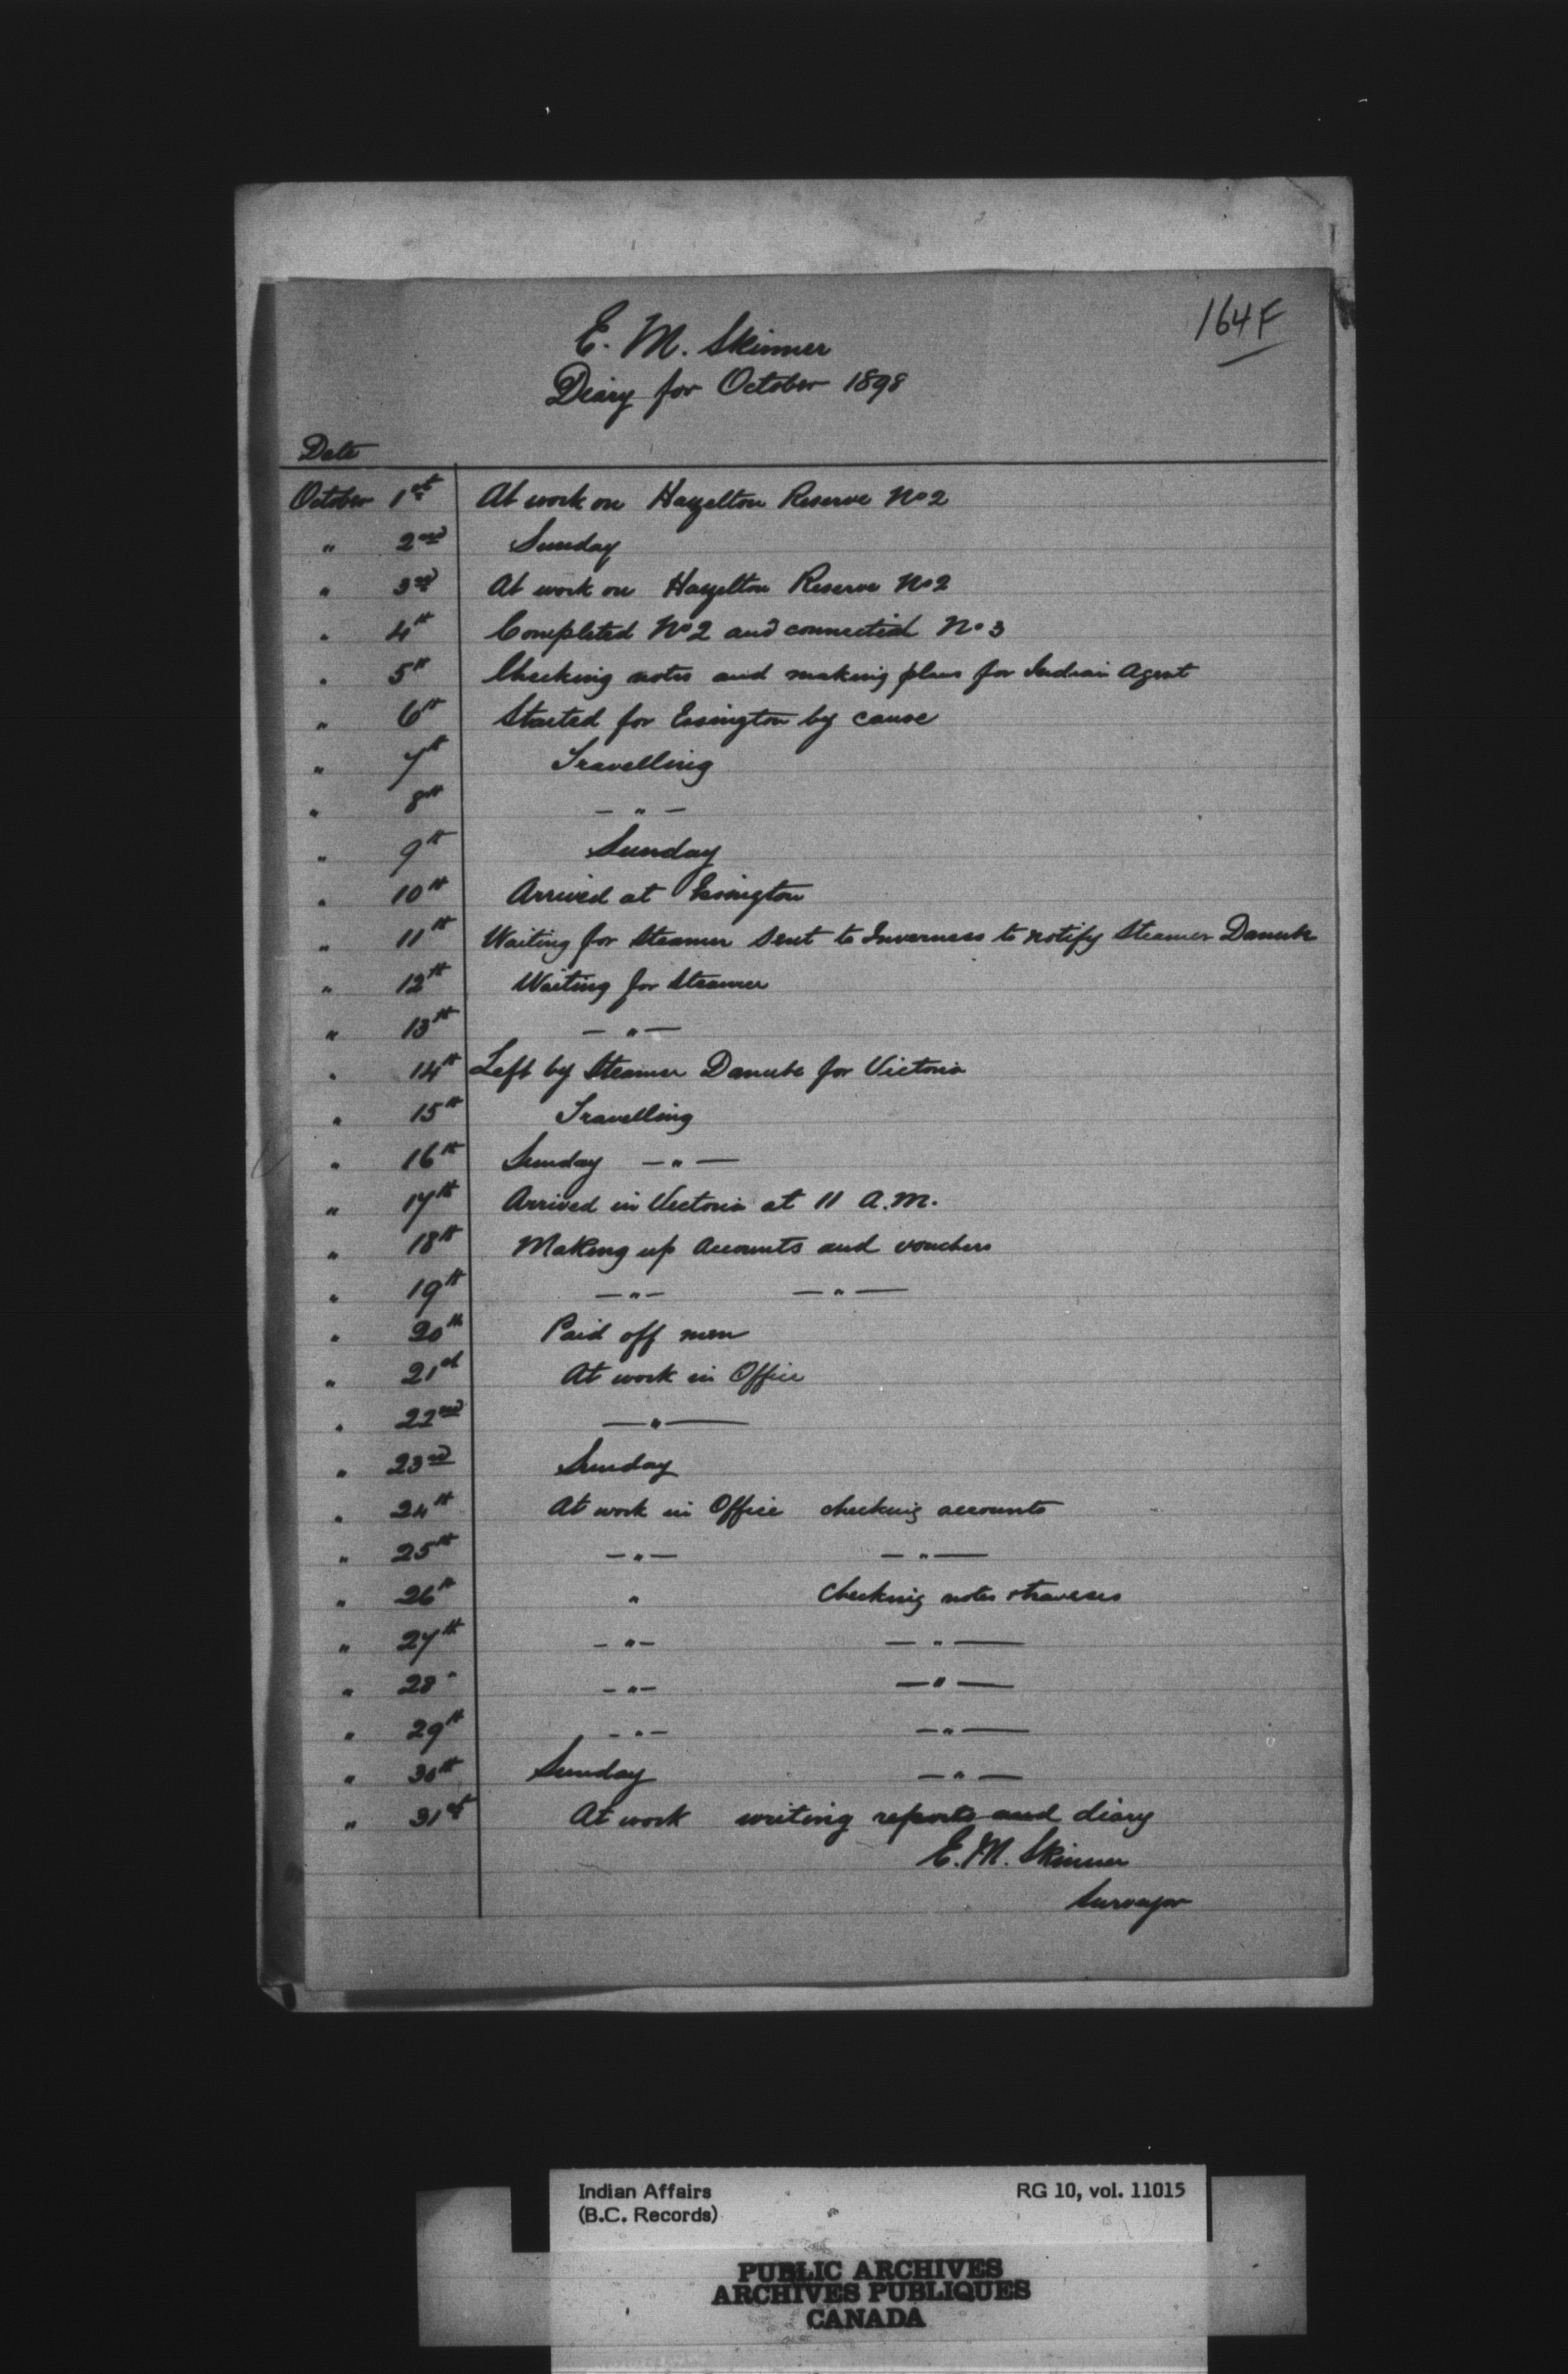 164F
E. M. Skinner
Diary for October 1898
Date
October 1st At work on Hazelton Reserve No 2
" 2nd Sunday
" 3rd At work on Hazelton Reserve No 2
" 4th Completed No 2 and connected No 3
" 5th Checking notes and making plans for Indian Agent
" 6th Started for Essington by canoe
" 7th Travelling
" 8th — " —
" 9th Sunday
" 10th Arrived at Essington
" 11th Waiting for Steamer Sent to Inverness to notify Steamer Danube
" 12th Waiting for Steamer
" 13th — " —
" 14th Left by Steamer Danube for Victoria
" 15th Travelling
" 16th Sunday — " —
" 17th Arrived in Victoria at 11 A.M.
" 18th Making up Accounts and vouchers
" 19th — " — — " —
" 20th Paid off men
" 21st At work in Office
" 22nd — " —
" 23rd Sunday
" 24th At work in Office checking accounts
" 25th — " — — " —
" 26th " Checking notes & traverses
" 27th — " — — " —
" 28 " — " — — " —
" 29th — " — — " —
" 30th Sunday — " —
" 31st At work writing reports and diary
E. M. Skinner
Surveyor
Indian Affairs RG 10, vol. 11015
(B.C. Records)
PUBLIC ARCHIVES
ARCHIVES PUBLIQUES
CANADA